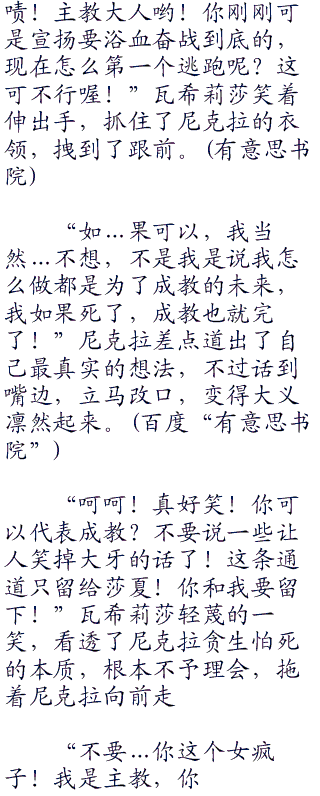 啧！主教大人哟！你刚刚可
是宣扬要浴血奋战到底的，
现在怎么第一个逃跑呢？这
可不行喔！”瓦希莉莎笑着
伸出手，抓住了尼克拉的衣
领，拽到了跟前。(有意思书
院)
“如…果可以，我当
然…不想，不是我是说我怎
么做都是为了成教的未来，
我如果死了，成教也就完
了！”尼克拉差点道出了自
己最真实的想法，不过话到
嘴边，立马改口，变得大义
凛然起来。(百度“有意思书
院”)
“呵呵！真好笑！你可
以代表成教？不要说一些让
人笑掉大牙的话了！这条通
道只留给莎夏！你和我要留
下！”瓦希莉莎轻蔑的一
笑，看透了尼克拉贪生怕死
的本质，根本不予理会，拖
着尼克拉向前走
“不要…你这个女疯
子！我是主教，你